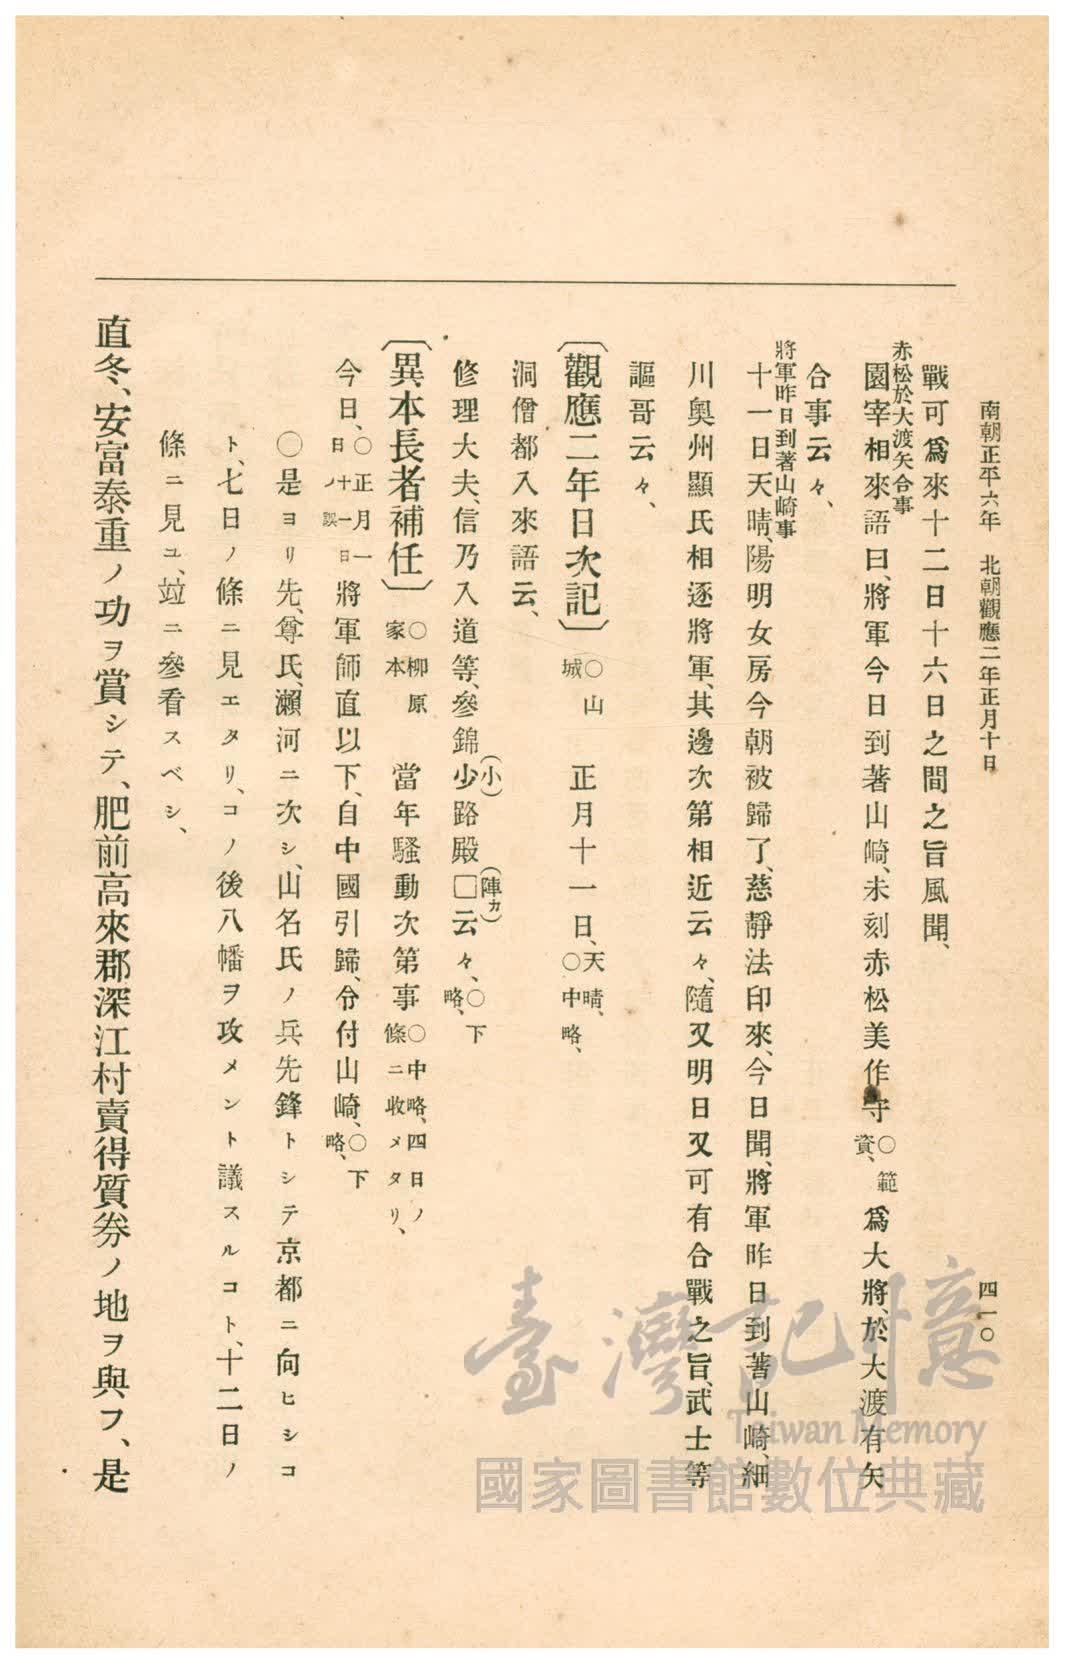 南朝正平六年　北朝觀應二年正月十日
四一〇
戰可爲來十二日十六日之間之旨風聞、
赤松於大渡矢合事
園宰相來語曰、將軍今日到著山崎、未刻赤松美作守○範資、爲大將、於大渡有矢
合事云々、
將軍昨日到著山崎事
十一日天晴、陽明女房今朝被歸了、慈靜法印來、今日聞、將軍昨日到著山崎、細
川奧州顯氏相逐將軍、其邊次第相近云々、隨又明日又可有合戰之旨、武士等
謳哥云々、
〔觀應二年日次記〕○山城　正月十一日、天晴、○中略、
洞僧都入來語云、
修理大夫、信乃入道等、參錦少(小)路殿□(陣カ)云々、○下略、
〔異本長者補任〕○柳原家本　當年騷動次第事○中略、四日ノ條ニ收メタリ、
今日、○正月一日ハ十一日ノ誤將軍師直以下、自中國引歸、令付山崎、○下略、
○是ヨリ先、尊氏、瀨河ニ次シ、山名氏ノ兵先鋒トシテ京都ニ向ヒシコ
ト、七日ノ條ニ見エタリ、コノ後八幡ヲ攻メント議スルコト、十二日ノ
條ニ見ユ、竝ニ參看スベシ、
直冬、安富泰重ノ功ヲ賞シテ、肥前高來郡深江村賣得質劵ノ地ヲ與フ、是
臺灣記憶
Taiwan Memory
國家圖書館數位典藏